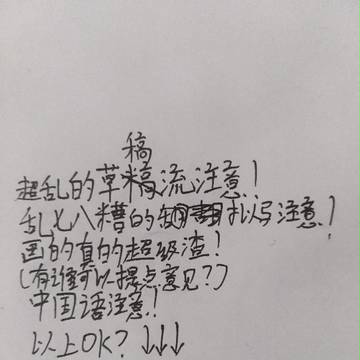 稿
超乱的草稿流注意!
乱七八糟的扒写注意!
画的真的超级渣!
(有谁可以提点意见??)
中国语注意!
以上OK? ↓↓↓